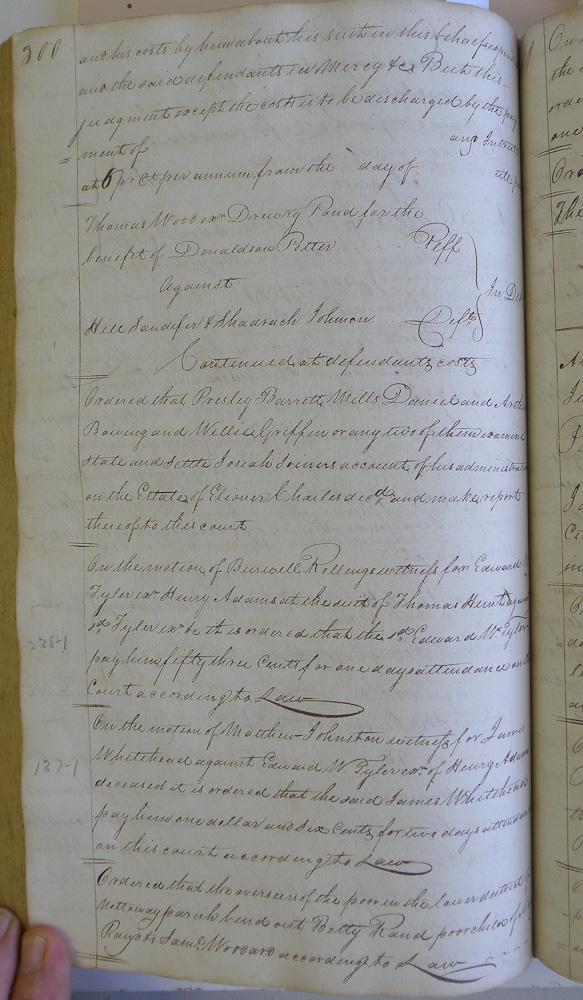 300
and his costs by him about his suit in this behalf
and the said defendants in Mercy &c But this
judgment except the costs is to be discharged by the pay
ment of and Interest
at 6 pr Ct per annum from the day of till
Thomas Wood exr Drewry Pond for the
benefit of Donaldson Potter Plff
against In De
Hill Sandifer & Shadrach Johnson Dift
Continued at defendants costs
Ordered that Presley Barrett, Mills Daniel and
Bowing and Willie Griffin or any two of them examine
state and settle Josiah Joiners account of his administration
on the Estate of Eleoner Charles decd and make report
thereof to this court
On the motion of Burwell Rollings witness for Edward
Tyler exr Henry Adams at the suit of Thomas Hunt against
sd Tyler exr &c it is ordered that the sd Edward W Tyler
238-1
pay him fifty three Cents for one days attendance on
Court according to Law
On the motion of Matthew Johnston witness for James
Whitehead against Edward W. Tyler exr of Henry Adams
137-1
deceased it is ordered that the said James Whitehead
pay him one dollar and six Cents for two days attendance
on this court according to Law
Ordered that the overseers of the poor in the lower district
Nottoway parish bind out Betty Rand poor child of
to Saml Woodard according to Law